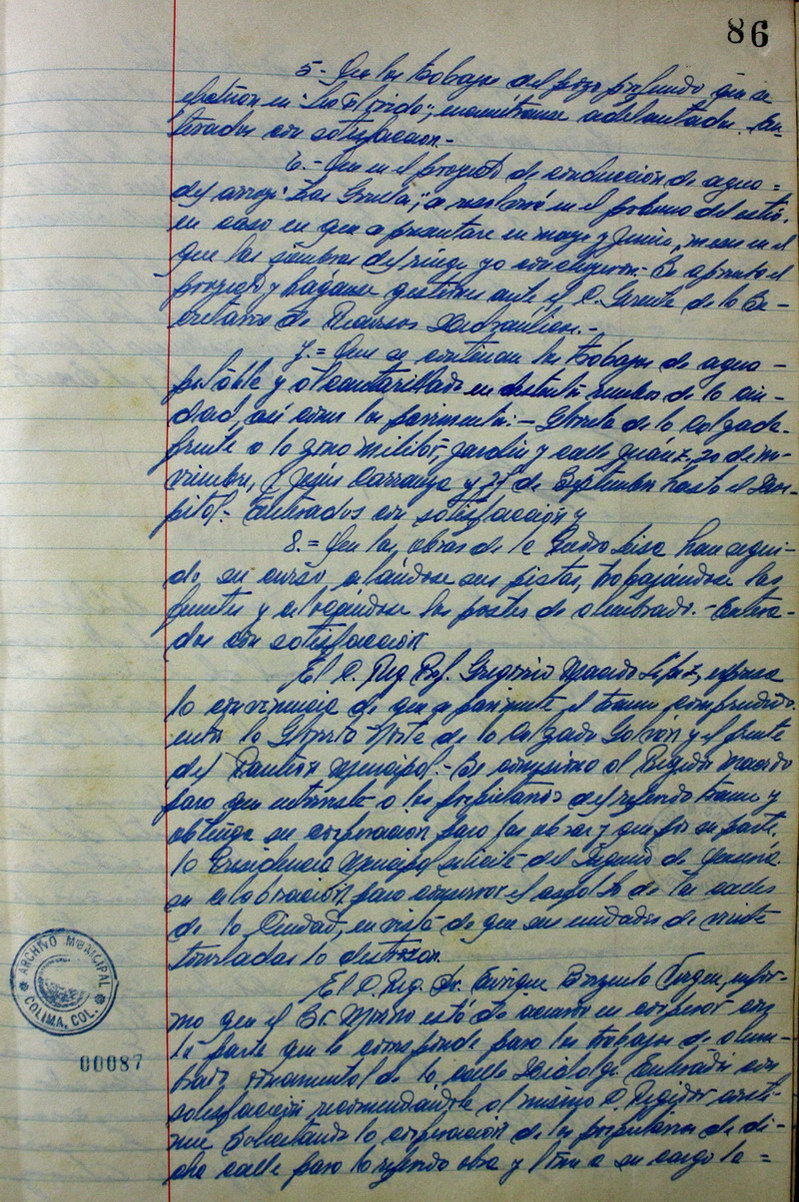 86
5.- Que los trabajos del pozo profundo que se
efectúan en "La Florida", encuéntranse adelantados. En-
terados con satisfacción.-
6.- Que en el proyecto de conducción de agua=
del arroyo "Las Grullas", a
en caso en que se presentare en mayo y Junio, en el
que las siembras de riego ya Se aprueba el
proyecto y háganse gestiones ante el C. Gerente de la Se-
cretaría de Recursos Hidráulicos.-
7.= Que se continúan los trabajos de agua-
potable y alcantarillado en distintos rumbos de la ciu-
dad, así como los pavimentos:- Glorieta de la Calzada
frente a la zona militar, jardín y calle Juárez, 20 de no-
viembre, J. Jesús Carranza y 27 de Septiembre hasta el Hos-
pital.- Enterados con satisfacción y
8.= Que las obras de la Piedra Lisa han segui-
do su curso aislándose sus pistas, trabajándose las
fuentes y colocándose los postes de alumbrado.- Entera-
dos con satisfacción
El C. Reg. Prof. Gregorio Macedo López, expresa
la conveniencia de que se pavimente el tramo comprendido
entre la Glorieta Norte de la Calzada Galván y el frente
del Panteón Municipal.- Se comisiona al Regidor Macedo
para que entreviste a los propietarios del referido tramo y
obtenga su cooperación para las obras y que por su parte,
la Presidencia Municipal solicite del Ingenio de Quesería
su colaboración para conservar el asfalto de las calles
de la Ciudad, en vista de que sus unidades de veinte
toneladas lo destrozan.
El C. Reg. Dr. Enrique Brizuela Virgen, infor-
mó que el Sr. Moreno está de acuerdo en cooperar con
la parte que le corresponde para los trabajos de alum-
brado ornamental de la calle Hidalgo. Enterados con
satisfacción recomendándole al mismo C. Regidor conti-
núe solicitando la cooperación de los propietarios de di-
cha calle para la referida obra y tome a su cargo la=
ARCHIVO MUNICIPAL
COLIMA, COL.
00087